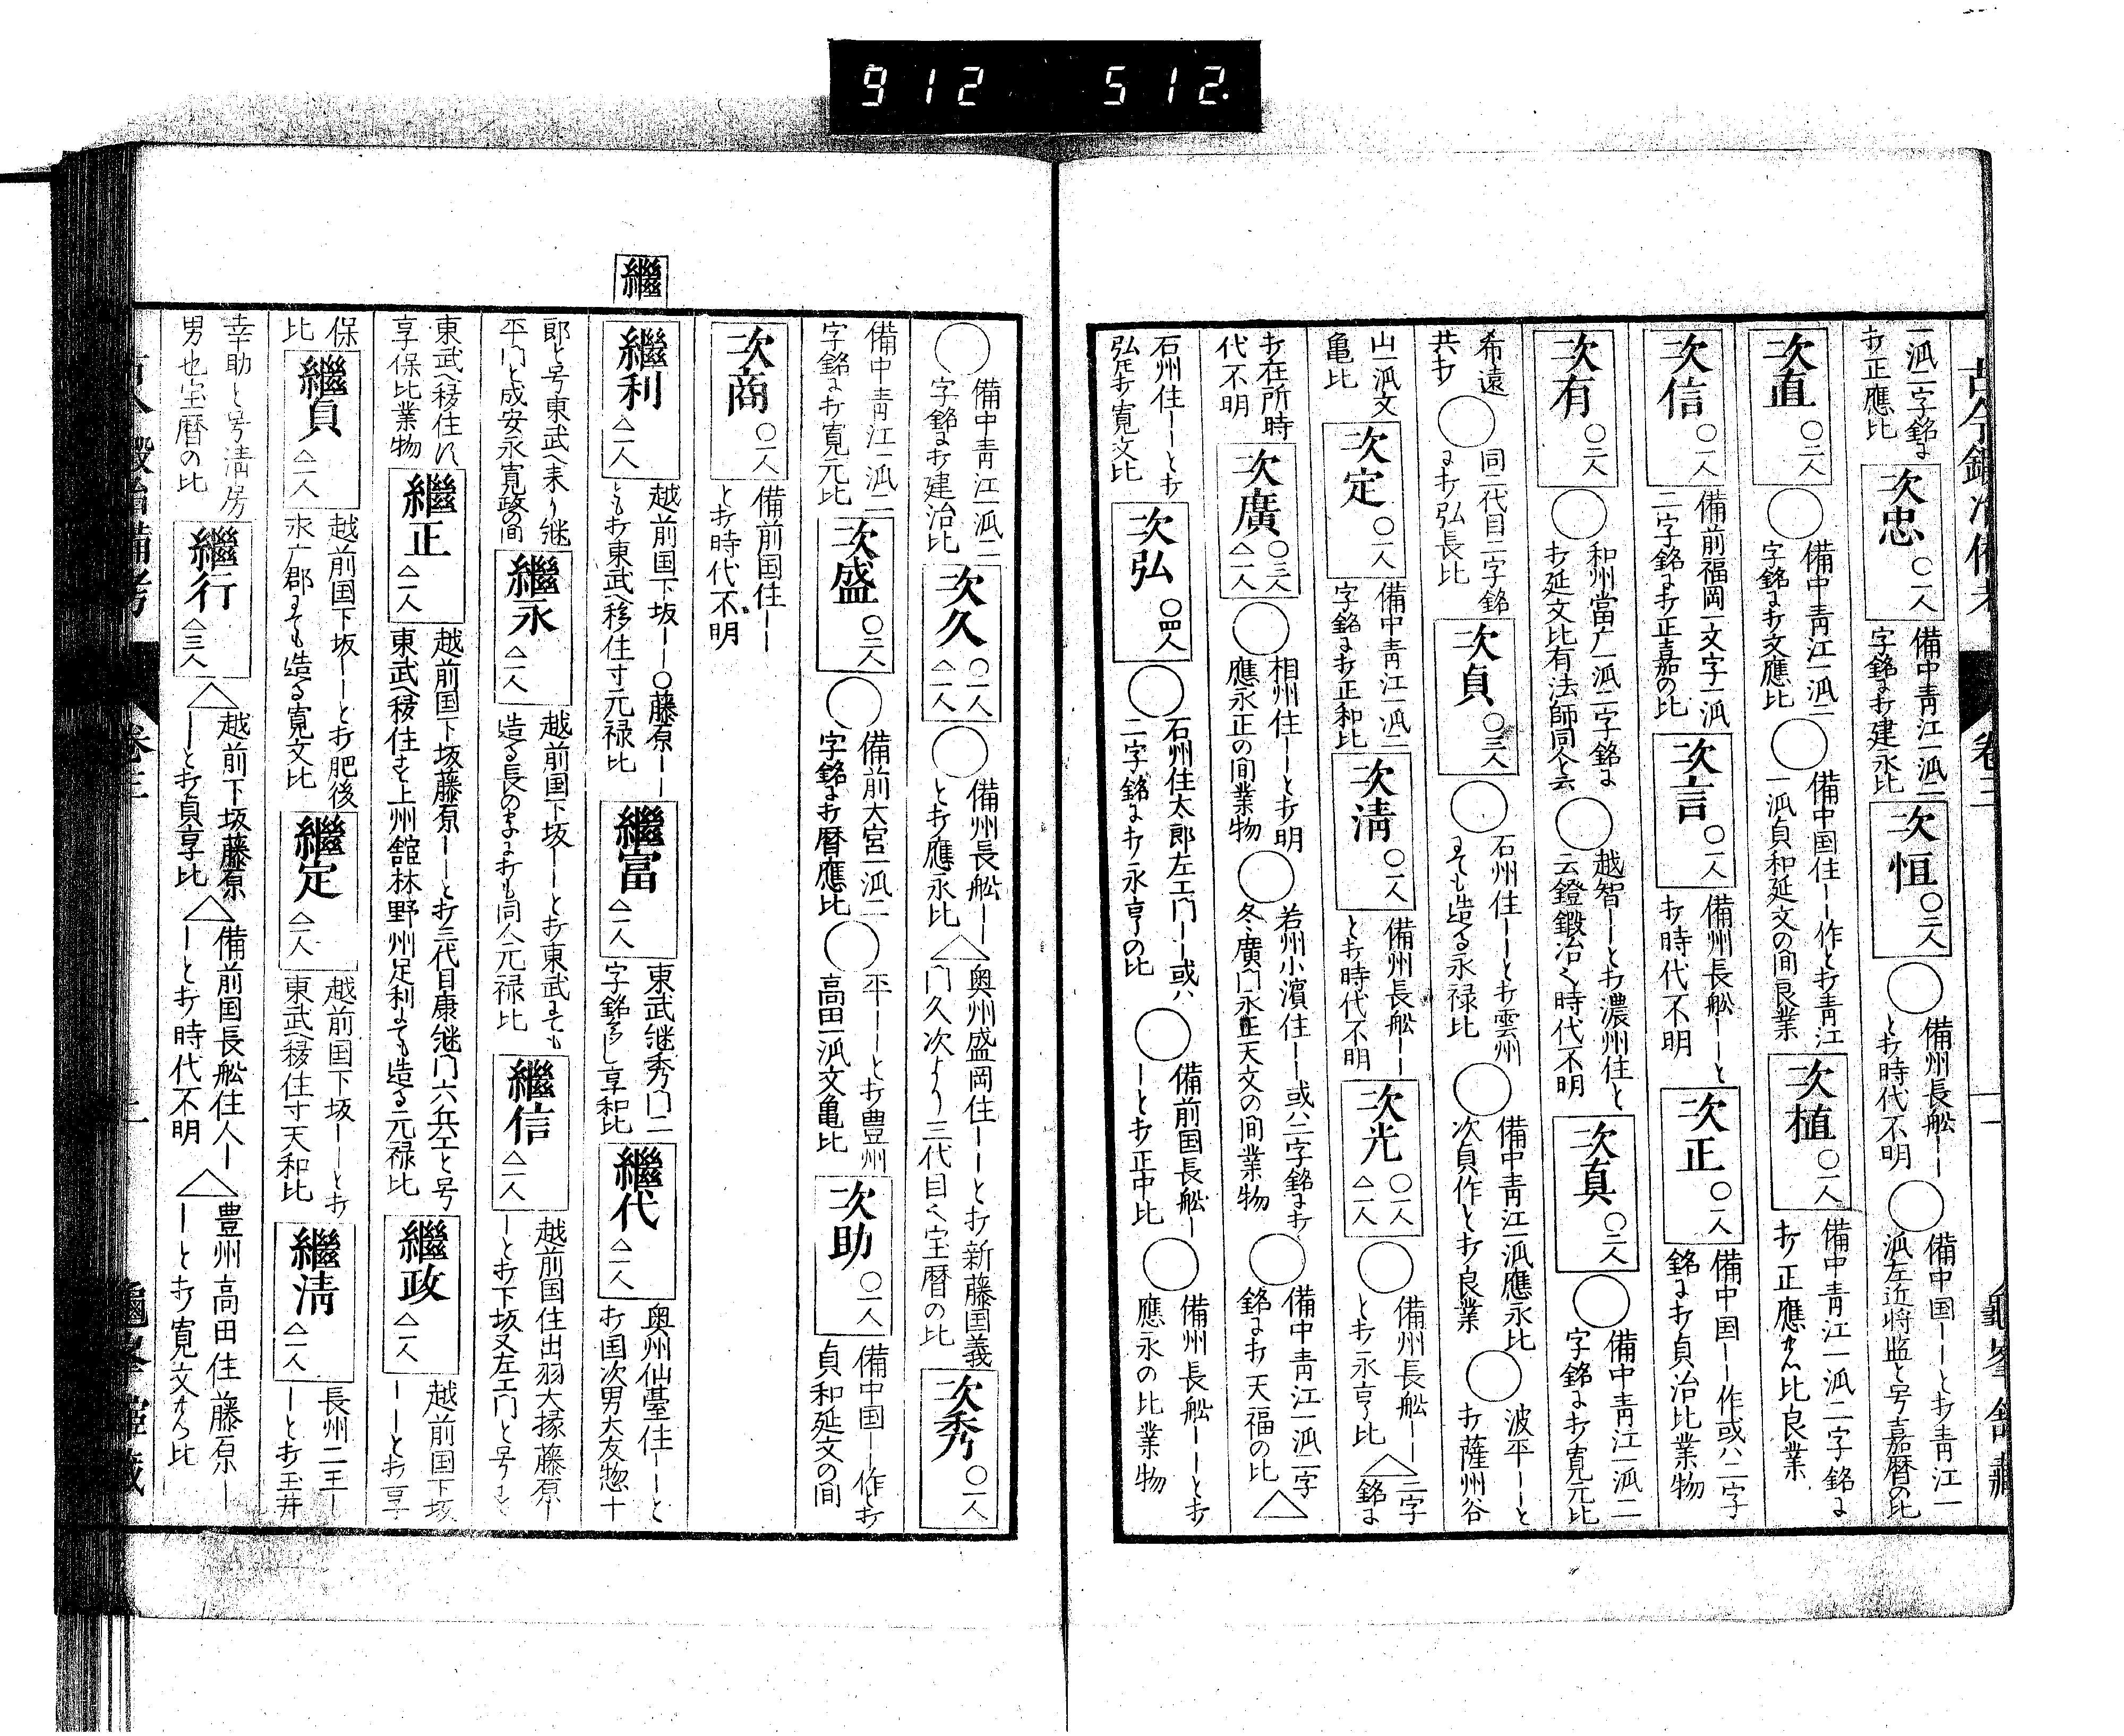 912 512.
古今鍛冶備考 卷三 一
一派二字銘に
打正應比
次忠 〇一人
備中靑江一派二
字銘に打建永比
次恒 〇二人
備州長舩ーー
と打時代不明
備中国ーーと打靑江一
派左近将監と号嘉暦の比
次直 〇二人
備中靑江一派二
字銘に打文應比
備中国住ー作と打靑江
一派貞和延文の間良業
次植 〇一人
備中靑江一派二字銘に
打正應比良業
次信 〇一人
備前福岡一文字一派
二字銘に打正嘉の比
次言 〇一人
備州長舩ーーと
打時代不明
次正 〇一人
備中国ーー作或ハ二字
銘に打貞治比業物
次有 〇二人
和州當广一派二字銘に
打延文比有法師同人と云
越智ーーと打濃州住と
云鐙鍛冶之時代不明
次真 〇二人
備中靑江一派二
字銘に打寛元比
希遠
共打
同二代目二字銘
に打弘長比
次貞 〇三人
石州住ーーと打雲州
にても造る永禄比
備中靑江一派應永比
次貞作と打良業
波平ーーと
打薩州谷
山一派文
亀比
次定 〇一人
備中靑江一派二
字銘に打正和比
次淸 〇一人
備州長舩ーー
と打時代不明
次光 〇一人 △一人
備州長舩ーー
と打永亨比
二字
銘に
打在所時
代不明
次廣 〇三人 △一人
相州住ーーと打明
應永正の間業物
若州小濱住ーー或ハ二字銘に打
冬廣门永正天文の間業物
備中靑江一派二字
銘に打天福の比
石州住ーーと打
弘圧打寛文比
次弘 〇四人
石州住太郎左エ门ーー或ハ
二字銘に打永亨の比
備前国長舩ー
ーと打正中比
備州長舩ーーと打
應永の比業物
備中靑江一派二
字銘に打建治比
次久 〇一人 △一人
備州長舩ーー
と打應永比
奥州盛岡住ーーと打新藤国義
门久次より三代目之宝暦の比
次秀 〇一人
備中靑江一派二
字銘に打寛元比
次盛 〇二人
備前大宮一派二
字銘に打暦應比
平ーーと打豊州
高田一派文亀比
次助 〇一人
備中国ー作と打
貞和延文の間
次商 〇一人
備前国住ーー
と打時代不明
繼
繼利 △一人
越前国下坂ーー〇藤原ーー
とも打東武へ移住寸元禄比
繼富 △一人
東武继秀门二
享和比
繼代 △一人
奥州仙臺住ーーと
打国次男大友惣十
郎と号東武へ来り继
平门と成安永寛政の間
繼永 △一人
越前国下坂ーーと打東武にても
元禄比
繼信 △一人
越前国住出羽大掾藤原ー
ーと打下坂又左エ门と号
東武へ移住
享保比業物
繼正 △一人
越前国下坂藤原ーーと打三代目康继门六兵エと号
東武へ移住又上州舘林野州足利にても造る元禄比
繼政 △一人
越前国下坂
ーーと打享
保
比
繼貞 △一人
越前国下坂ーーと打肥後
郡にても造る寛文比
繼定 △一人
越前国下坂ーーと打
東武へ移住寸天和比
繼淸 △一人
長州二王ー
ーと打玉井
幸助と号淸房
男也宝暦の比
繼行 △三人
越前下坂藤原
ーーと打貞享比
備前国長舩住人ー
ーと打時代不明
豊州高田住藤原ー
ーと打寛文比